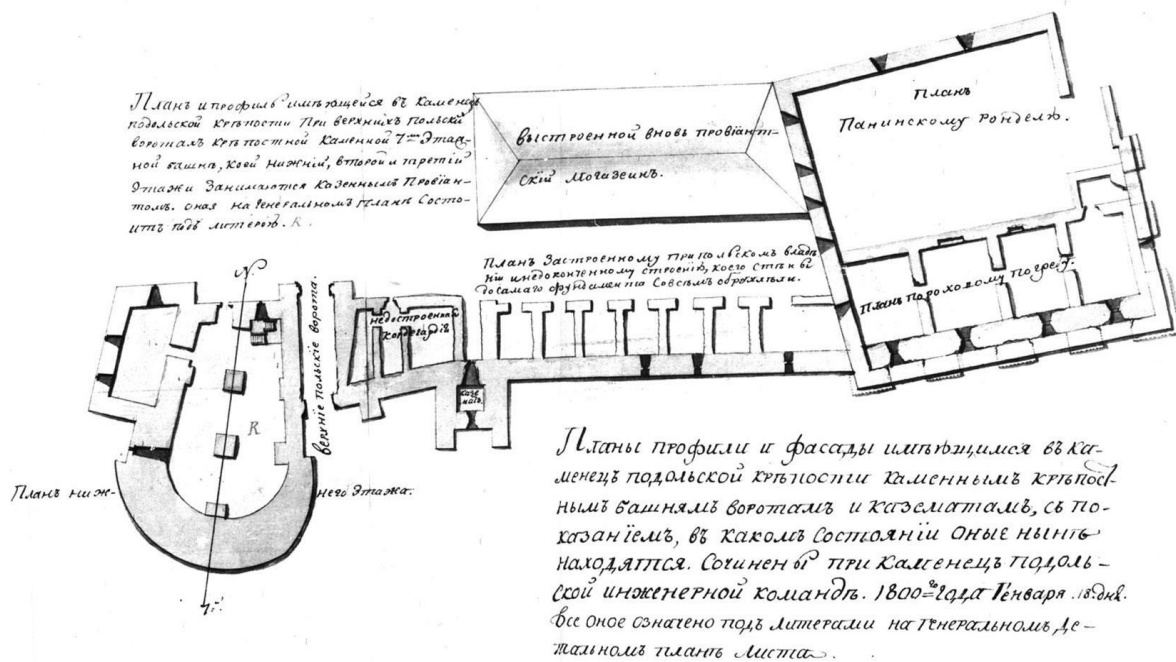 Планъ и профиль имѣющейся въ Каменецъ
подольской крѣпости При верхнихъ польскихъ
воротахъ крѣпостной каменной 7ми Этаж-
ной башнѣ, коей нижній, второй и третій
Этажи Занимаются казеннымъ Провіан-
томъ. оная на Генеральномъ планѣ Состо-
итъ подъ литерою. К.
выстроенной вновь провіант-
скій Могазеинъ.
Планъ
Панинскому ронделю.
Планъ пороховому погребу.
Планъ Застроенному При польскомъ владѣ-
ніи и недоконченному строенію, коего стѣны
до самаго фундамента Совсѣмъ обрушились.
недостроенная
кордегардія
верхніе польскіе ворота.
казе
матъ.
N.
К
Планъ ниж-
него Этажа.
Планы профили и фасады имѣющимся въ Ка-
менецъ подольской крѣпости каменнымъ крѣпос-
нымъ башнямъ воротамъ и казематамъ, съ по-
казаніемъ, въ какомъ Состояніи Оные нынѣ
находятся. Сочинены при Каменецъ подоль-
ской инженерной командѣ. 1800го Года Генваря 18. дня.
все оное означено подъ литерами на Генеральномъ де-
тальномъ планѣ Листа.